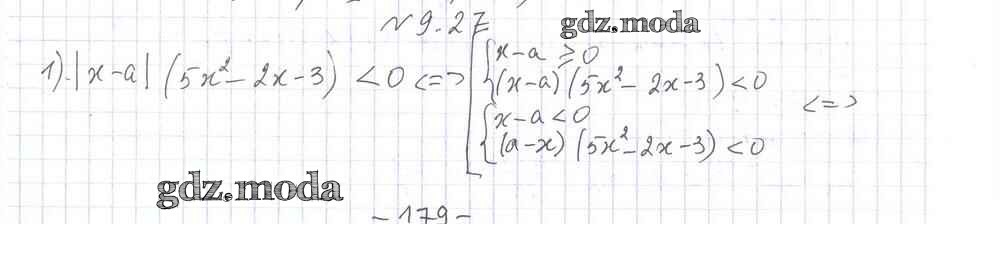 № 9.27 gdz.moda
x-a ≥ 0
1). |x-a| (5x²-2x-3) <0 <=> (x-a) (5x²-2x-3) <0 <=>
x-a <0
(a-x) (5x²-2x-3) <0
gdz.moda
-179-